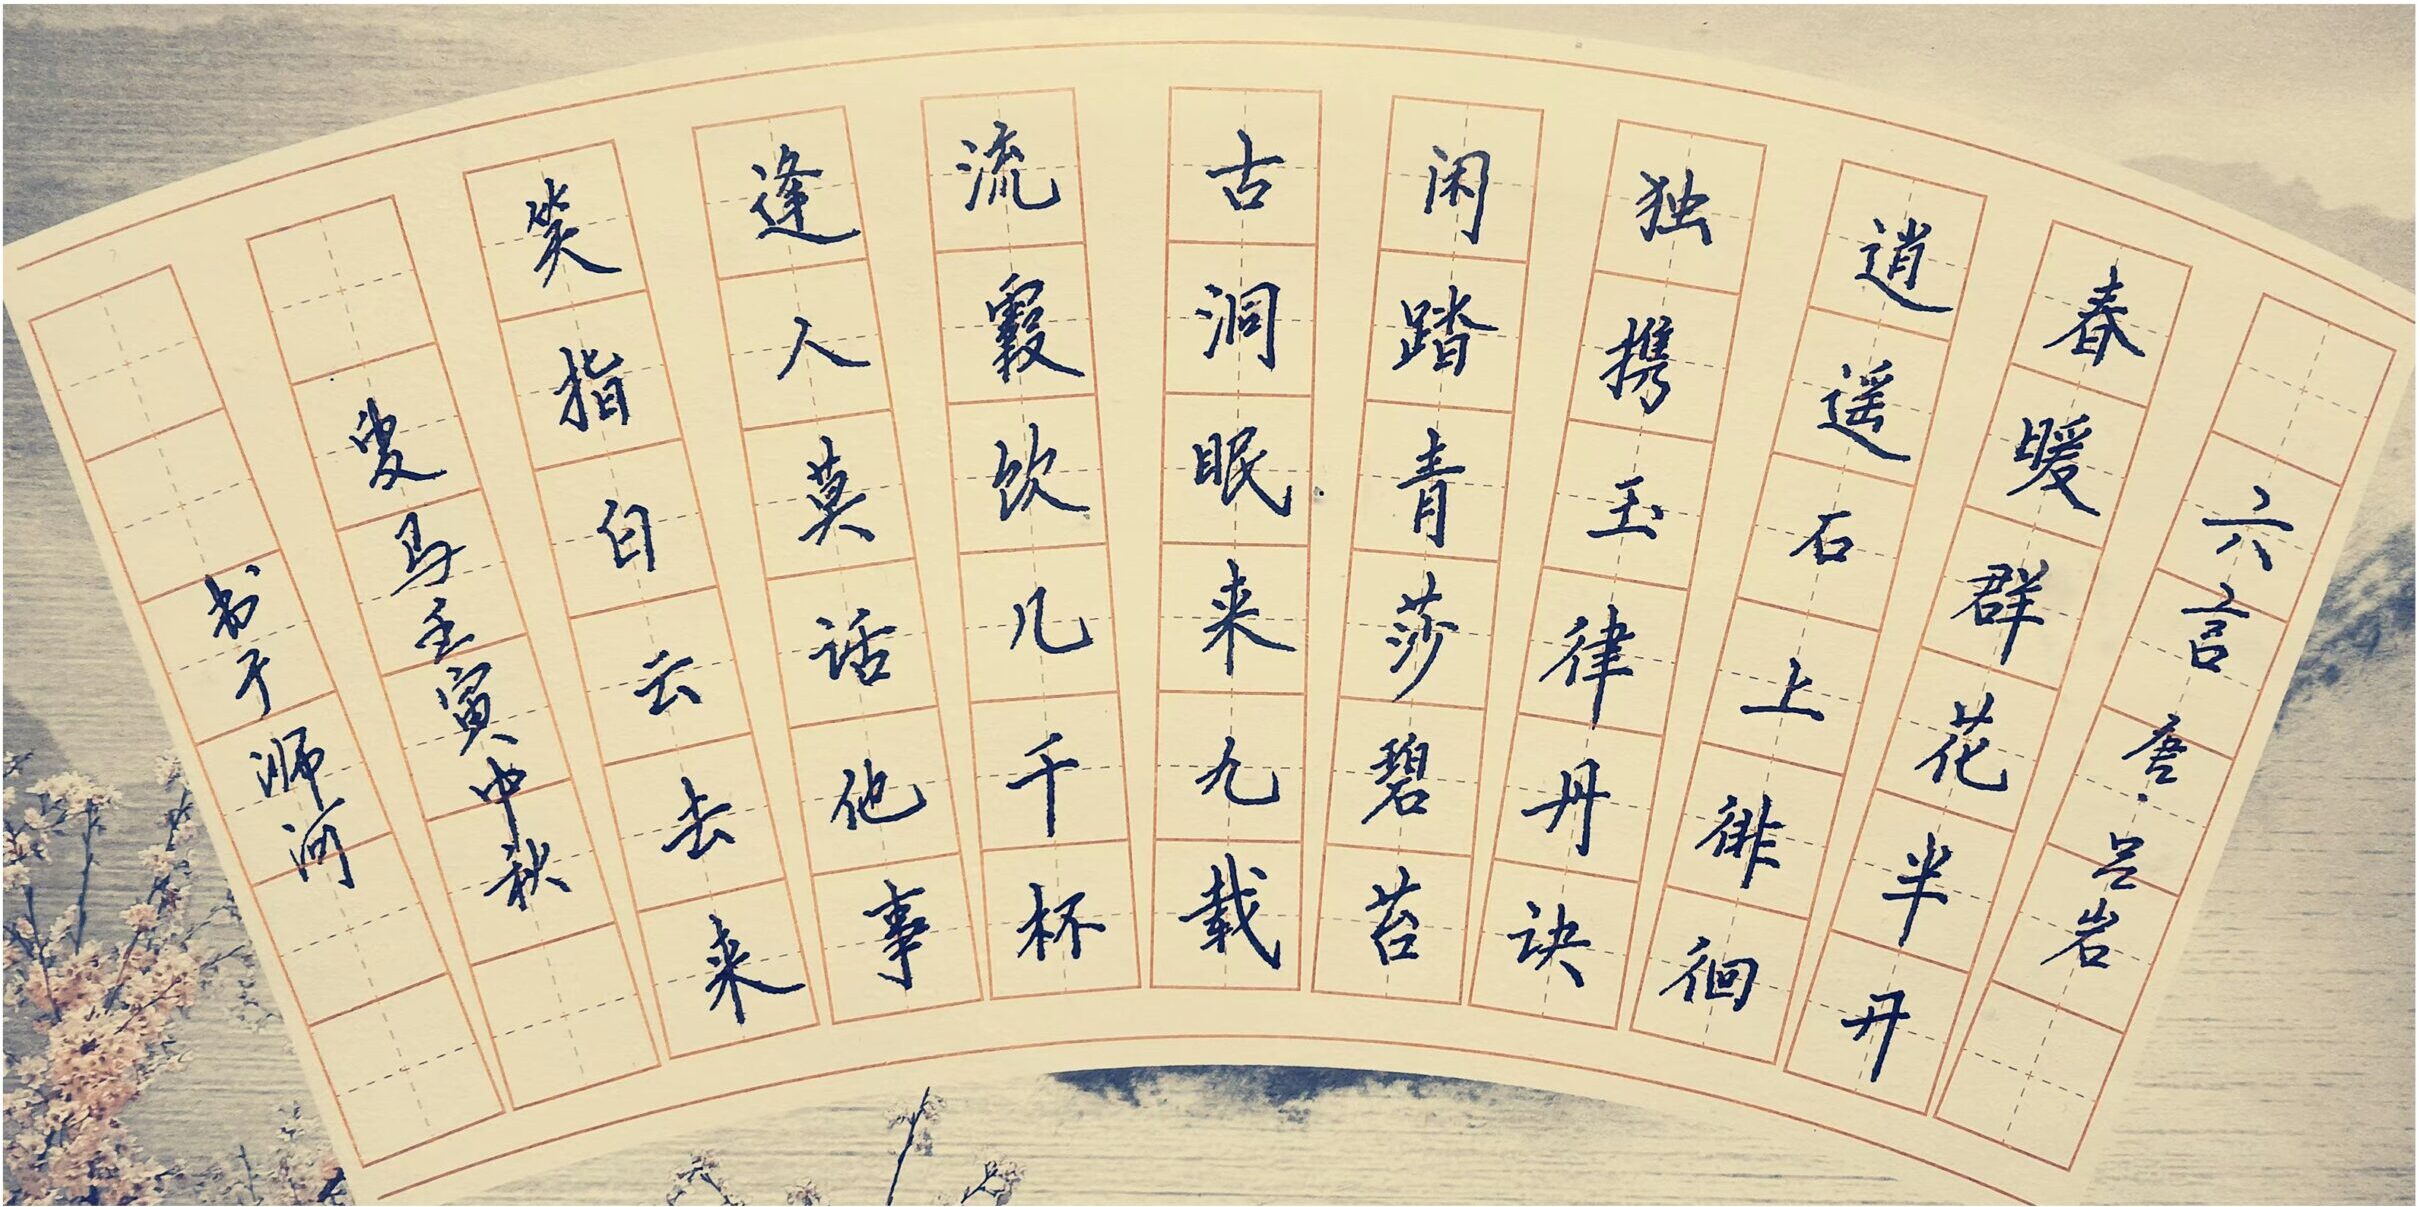 六言 唐·吕岩
春暖群花半开
逍遥石上徘徊
独携玉律丹诀
闲踏青莎碧苔
古洞眠来九载
流霞饮几千杯
逢人莫话他事
笑指白云去来
叟马壬寅中秋
书于浉河